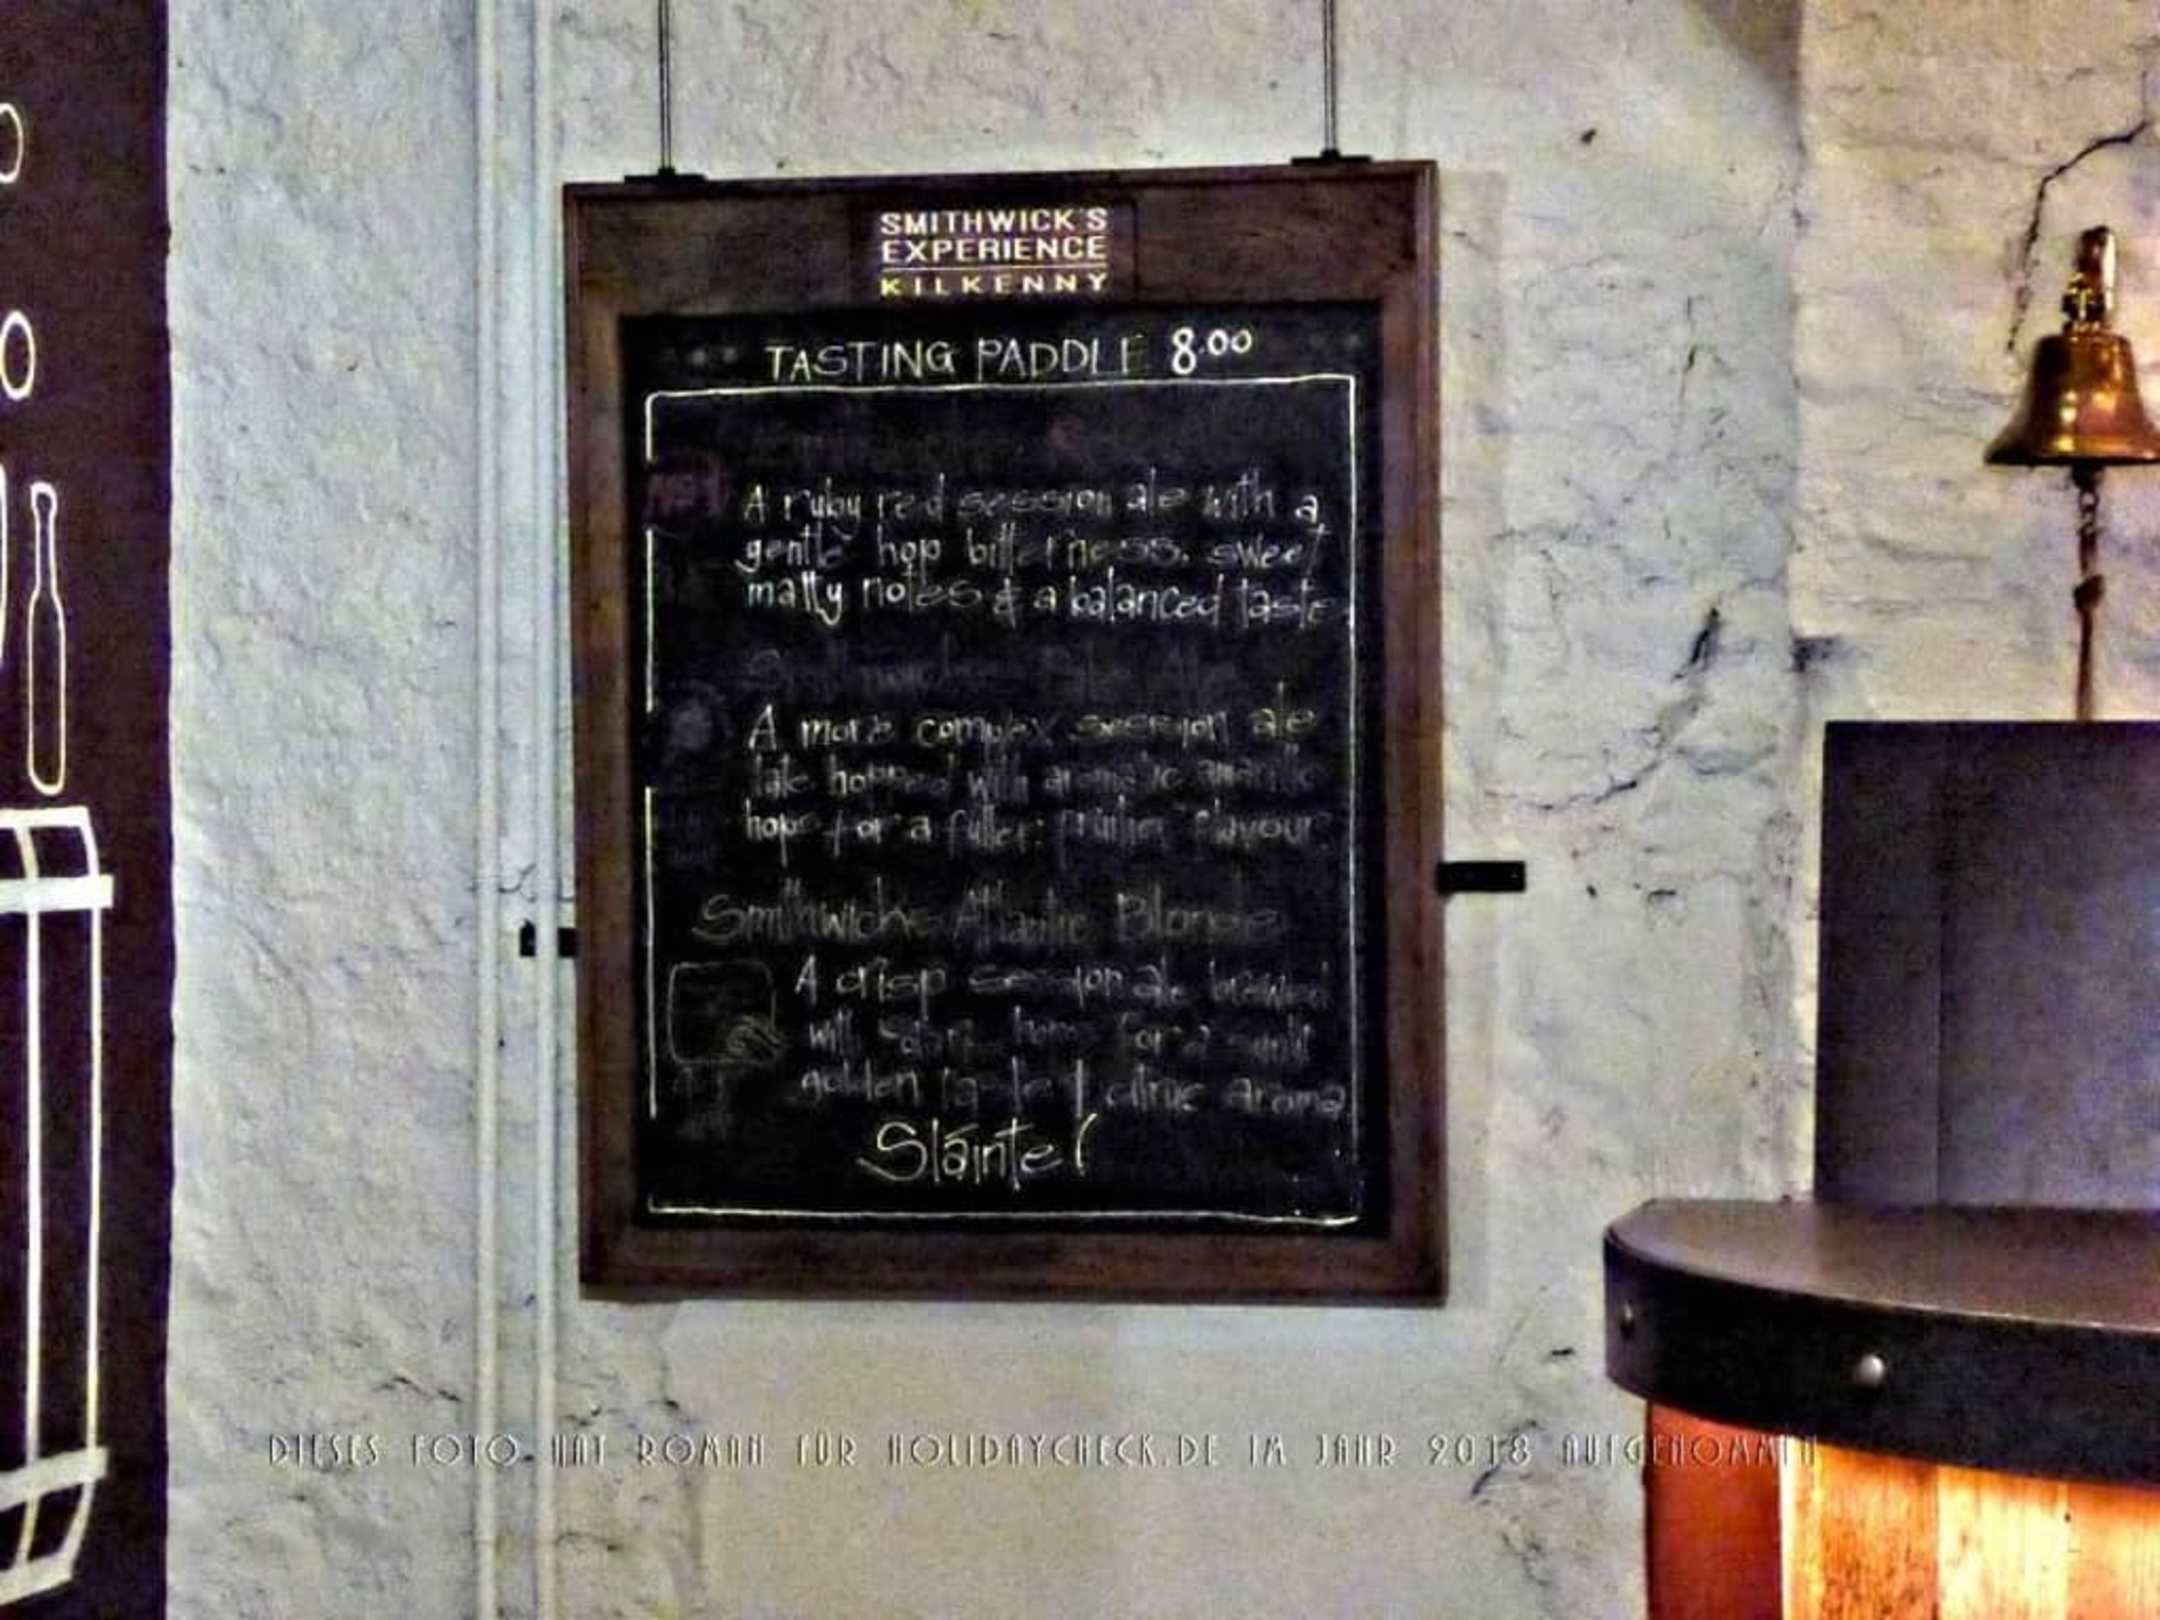 SMITHWICK'S
EXPERIENCE
KILKENNY
TASTING PADDLE 8.00
A ruby red session ale with a
gentle hop bitterness, sweet
malty notes & a balanced taste
Smithwicks Pale Ale
A more complex session ale
late hopped with aromatic amarillo
hops for a fuller, fruitier flavour
Smithwicks Atlantic Blonde
A crisp session ale brewed
with hops for a
golden taste & citrus aroma
Sláinte!
DIESES FOTO HAT ROMAN FÜR HOLIDAYCHECK.DE IM JAHR 2018 AUFGENOMMEN